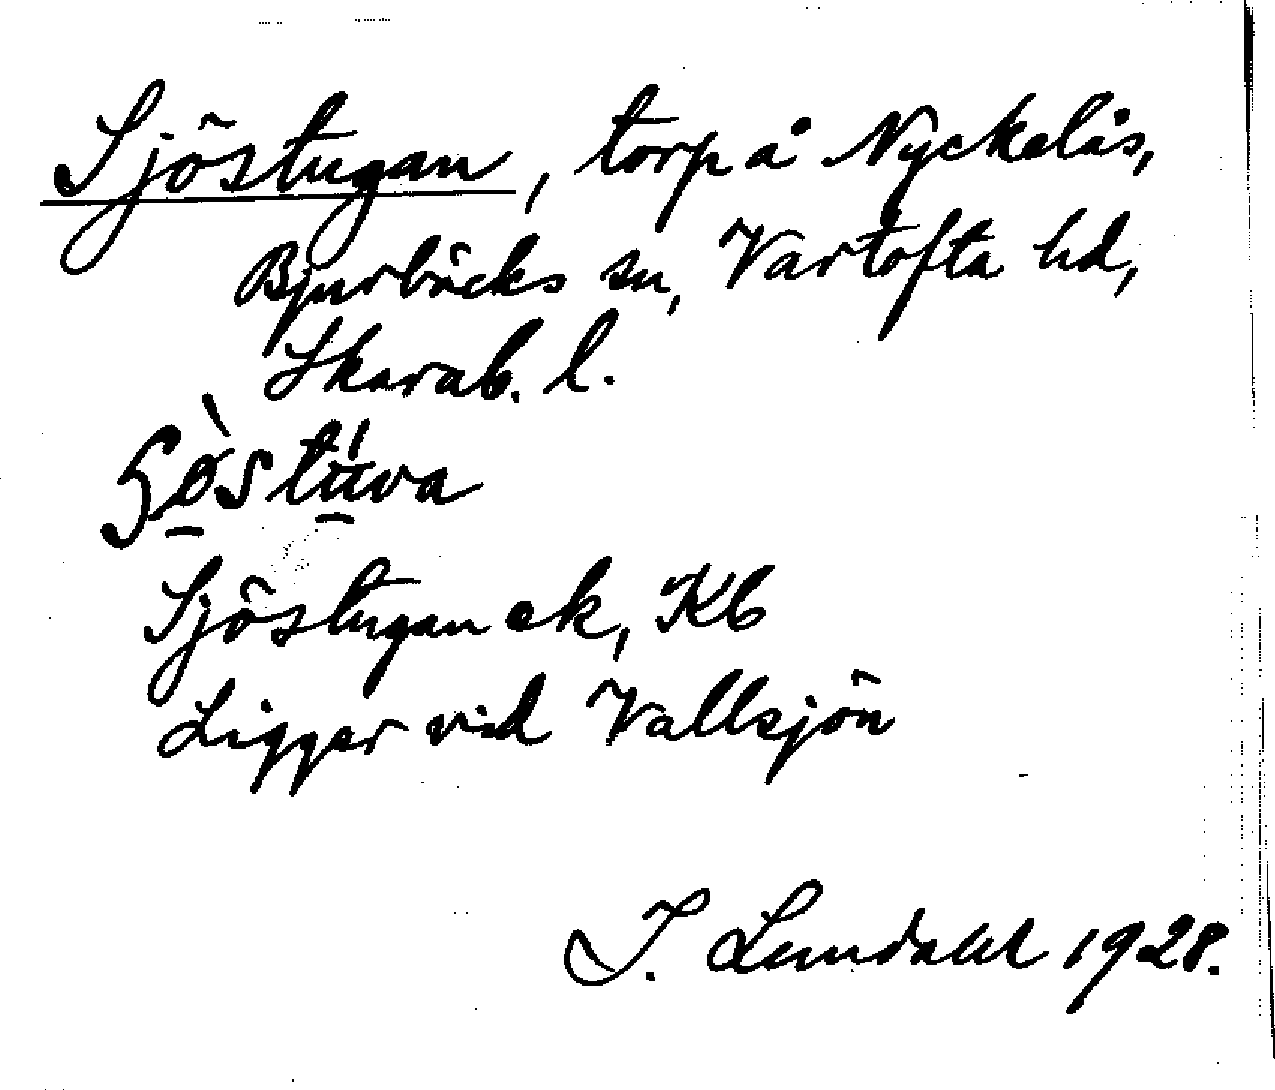 Sjöstugan, torp å Nyckelås,
Bjurbäcks sn, Vartofta hd,
Skarab. l.
Sjöstugan ek, Kb
Ligger vid Vallsjön
I. Lundahl 1928.